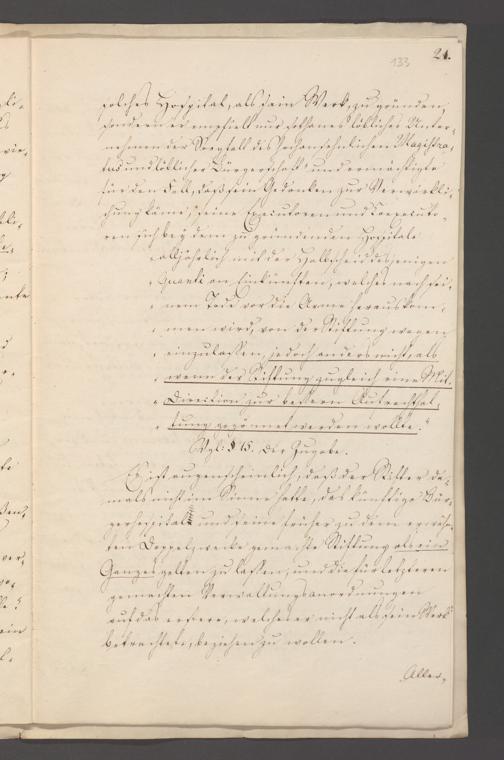 133
21.
solches Hospital, als sein Werk, zu gründen,
sondern er empfiehlt nur sothanes löbliches Unter-
nehmen der Sorgfalt des Hochansehnlichen Magistra-
tus und löblicher Bürgerschaft und ermächtigte
für den Fall, daß sein Gedanken zur Verwirkli-
chung käme, „seine Executoren und Coexecuto-
ren sich bey dem zu gründenden Hospitale
„ alljährlich mit der Halbscheid desjenigen
„ Quanti an Einkünften, welches nach sei-
„ nem Tode vor die Arme herauskom-
„ men wird, von der Stiftung wegen
„ einzulassen, jedoch anders nicht, als
„ wenn der Stiftung zugleich eine Mit-
„ Direction zur bessern Aufrechthal-
„ tung gegönnet werden wollte.“
Vgl. § 15. der Zugabe.
Es ist augenscheinlich, daß der Stifter da-
mals nicht im Sinne hatte, das künftige Bür-
gerhospital und seine früher zu dem erwähn-
ten Doppelzwecke gemachte Stiftung als ein
Ganzes gelten zu lassen, und die für letzteren
gemachten Verwaltungsanordnungen
auf das erstere, welches er nicht als sein Werk
betrachtete, beziehen zu wollen.
Aller-